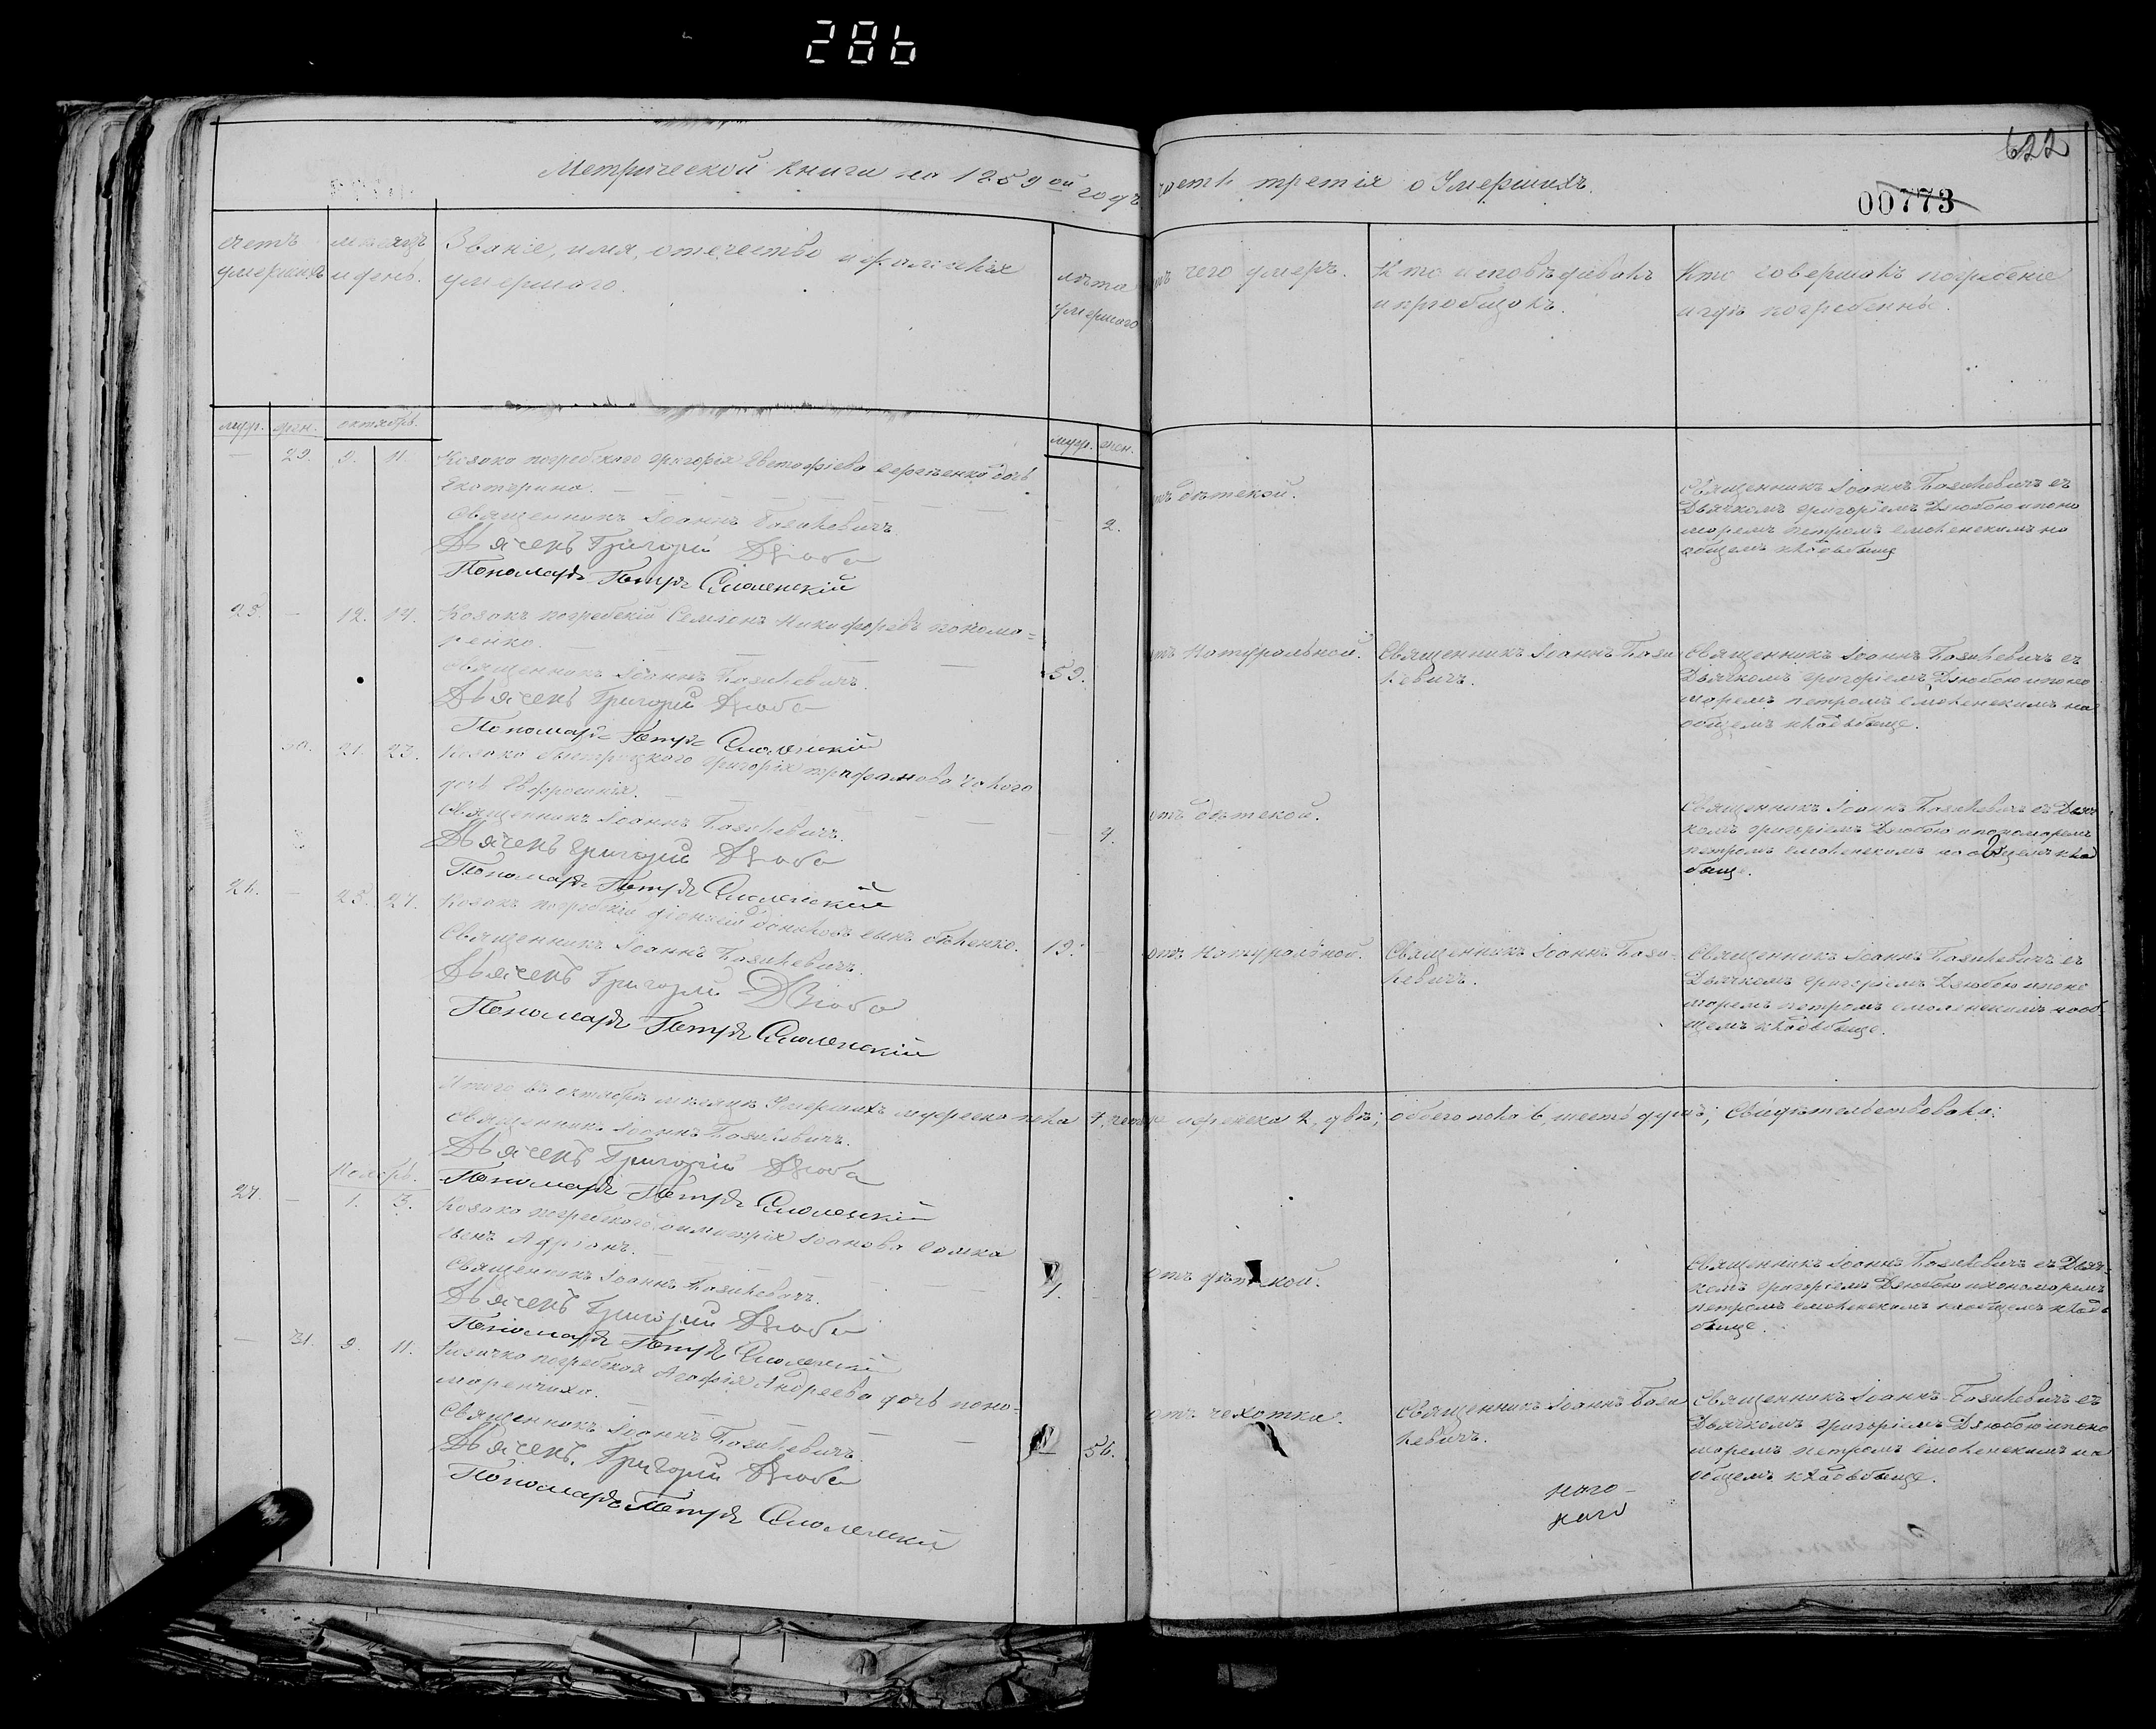 286
622
00773
Метрической книги на 1859ой годъ часть третія о Умершихъ.
счетъ умершихъ
месяцъ и день.
Званіе, имя, отечество и фамилія умершаго.
лѣта умершаго
отъ чего умеръ.
Кто исповѣдывалъ и пріобщалъ.
Кто совершалъ погребеніе и гдѣ погребенны.
муж. жен. октябрь. муж. жен.
— 29. 9. 11. Козака погребского Григорія Евстафіева Сергіенка дочь
Екатерина.
Священникъ Іоаннъ Базилевичъ.
Дьячекъ Григорій Дзюба
Пономарь Петръ Смоленскій
2.
отъ дѣтской.
Священникъ Іоаннъ Базилевичъ съ
Дьячкомъ Григоріемъ Дзюбою и поно
маремъ Петромъ Смоленскимъ на
общемъ кладбище
25. — 12. 14. Козакъ погребскій Семіонъ Никифоровъ Понома=
ренко.
Священникъ Іоаннъ Базилевичъ.
Дьячекъ Григорій Дзюба
Пономарь Петръ Смоленскій
59.
отъ Натуральной.
Священникъ Іоаннъ Бази
левичъ.
Священникъ Іоаннъ Базилевичъ съ
Дьячкомъ Григоріемъ Дзюбою и поно
маремъ Петромъ Смоленскимъ на
общемъ кладбище.
30. 21. 23. Козака Григорія Трифонова
дочь Евфросинія.
Священникъ Іоаннъ Базилевичъ.
Дьячекъ Григорій Дзюба
Пономарь Петръ Смоленскій
— 4.
отъ дѣтской.
Священникъ Іоаннъ Базилевичъ съ Дьяч
комъ Григоріемъ Дзюбою и пономаремъ
Петромъ Смоленскимъ на общемъ клад
бище.
26. — 25. 27. Козакъ погребскій
Священникъ Іоаннъ Базилевичъ.
Дьячекъ Григорій Дзюба
Пономарь Петръ Смоленскій
19.
отъ Натуральной.
Священникъ Іоаннъ Бази-
левичъ.
Священникъ Іоаннъ Базилевичъ съ
Дьячкомъ Григоріемъ Дзюбою и поно
маремъ Петромъ Смоленскимъ на об
щемъ кладбище.
Итого въ октябрѣ месяцѣ Умершихъ мужеска пола 4, четыре и женска 2, двѣ; обоего пола 6, шесть душъ; Свидѣтельствовали:
Священникъ Іоаннъ Базилевичъ.
Дьячекъ Григорій Дзюба
Пономарь Петръ Смоленскій
Ноябрь.
27. — 1. 3. Козака погребского Димитрія Іоанова Сомка
сынъ Адріанъ.
Священникъ Іоаннъ Базилевичъ.
Дьячекъ Григорій Дзюба
Пономарь Петръ Смоленскій
отъ дѣтской.
Священникъ Іоаннъ Базилевичъ съ Дьяч-
комъ Григоріемъ Дзюбою и пономаремъ
Петромъ Смоленскимъ на общемъ клад
бище.
— 31. 9. 11. Козачка погребская Агафія Андреева дочь Поно-
маренчиха.
Священникъ Іоаннъ Базилевичъ.
Дьячекъ Григорій Дзюба
Пономарь Петръ Смоленскій
56.
отъ чахотки.
Священникъ Іоаннъ Бази
левичъ.
Священникъ Іоаннъ Базилевичъ съ
Дьячкомъ Григоріемъ Дзюбою и поно
маремъ Петромъ Смоленскимъ на
общемъ кладбище.